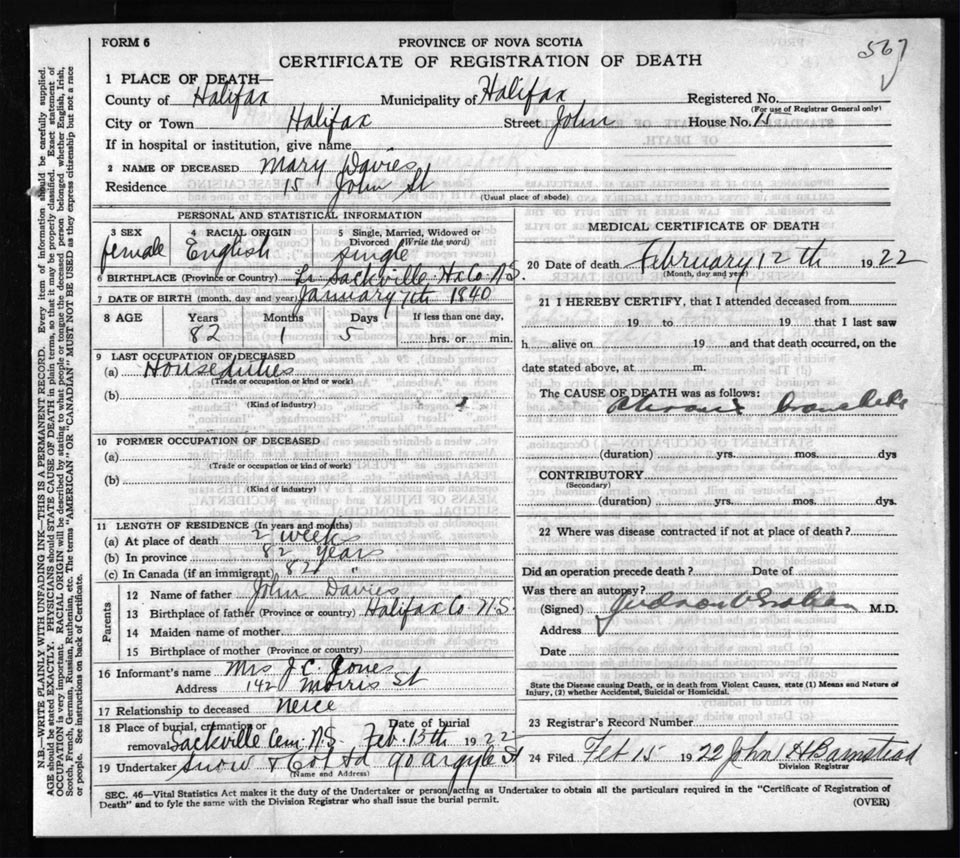 FORM 6
PROVINCE OF NOVA SCOTIA
567
CERTIFICATE OF REGISTRATION OF DEATH
1 PLACE OF DEATH—
County of Halifax Municipality of Halifax Registered No.
(For use of Registrar General only)
City or Town Halifax Street John House No. 15
If in hospital or institution, give name
2 NAME OF DECEASED Mary Davies
Residence 15 John St
(Usual place of abode)
PERSONAL AND STATISTICAL INFORMATION
3 SEX 4 RACIAL ORIGIN 5 Single, Married, Widowed or Divorced (Write the word)
female English Single
6 BIRTHPLACE (Province or Country) Lr Sackville Hx Co N.S.
7 DATE OF BIRTH (month, day and year) January 7th 1840
8 AGE Years Months Days If less than one day,
82 1 5 hrs. or min.
9 LAST OCCUPATION OF DECEASED
(a) Houseduties
(Trade or occupation or kind or work)
(b)
(Kind of industry)
10 FORMER OCCUPATION OF DECEASED
(a)
(Trade or occupation or kind of work)
(b)
(Kind of industry)
11 LENGTH OF RESIDENCE (In years and months)
(a) At place of death 2 weeks
(b) In province 82 years
(c) In Canada (if an immigrant) 82 "
Parents
12 Name of father John Davies
13 Birthplace of father (Province or country) Halifax Co N.S
14 Maiden name of mother
15 Birthplace of mother (Province or country)
16 Informant's name Mrs J.C. Jones
Address 142 Morris St
17 Relationship to deceased neice
18 Place of burial, cremation or removal Sackville Cem. N.S. Date of burial Feb. 13th 1922
19 Undertaker Snow & Co Ltd 90 Argyle St
(Name and Address)
MEDICAL CERTIFICATE OF DEATH
20 Date of death February 12th 1922
(Month, day and year)
21 I HEREBY CERTIFY, that I attended deceased from
19 to 19 that I last saw
h alive on 19 and that death occurred, on the
date stated above, at m.
The CAUSE OF DEATH was as follows:
Chronic
(duration) yrs. mos. dys
CONTRIBUTORY
(Secondary)
(duration) yrs. mos. dys.
22 Where was disease contracted if not at place of death?
Did an operation precede death? Date of
Was there an autopsy?
(Signed) Judson M.D.
Address
Date
State the Disease causing Death, or in death from Violent Causes, state (1) Means and Nature of
Injury, (2) whether Accidental, Suicidal or Homicidal.
23 Registrar's Record Number
24 Filed Feb 15 1922 John H Barnstead
Division Registrar
SEC. 46—Vital Statistics Act makes it the duty of the Undertaker or person acting as Undertaker to obtain all the particulars required in the "Certificate of Registration of
Death" and to fyle the same with the Division Registrar who shall issue the burial permit.
(OVER)
N.B.—WRITE PLAINLY WITH UNFADING INK—THIS IS A PERMANENT RECORD. Every item of information should be carefully supplied.
AGE should be stated EXACTLY. PHYSICIANS should STATE CAUSE OF DEATH in plain terms, so that it may be properly classified. Exact statement of
OCCUPATION is very important. RACIAL ORIGIN will be described by stating to what people or tongue the deceased person belonged whether English, Irish,
Scotch, French, German, Russian, Ruthenian, etc. The terms "AMERICAN" OR "CANADIAN" MUST NOT BE USED as they express citizenship but not a race
or people. See instructions on back of Certificate.